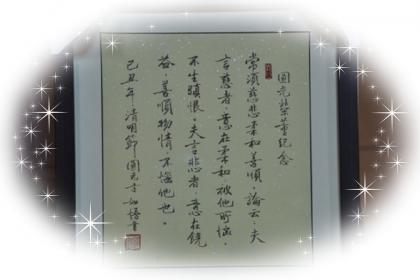 圓光榮董紀念
常須慈悲柔和善順。論云。夫
言慈者。意在柔和。被他所惱。
不生瞋恨。夫言悲者。意在饒
益。善順物情。不惱他也。
己丑年清明節圓光寺如悟書